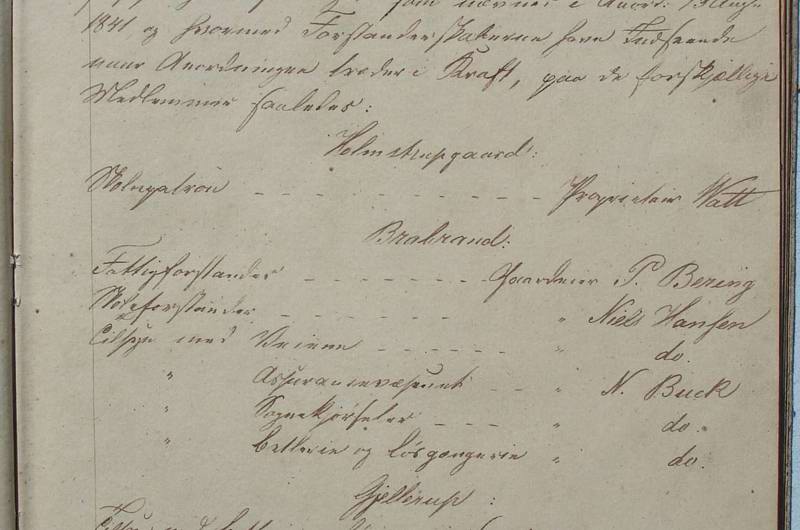 som nævnes i Anord: 13 Aug.
1841, og hvormed Forstanderskaberne have Indseende
naar Anordningen træder i Kraft, paa de forskjællige
Medlemmer saaledes:
Holmstrupgaard:
Skolepatron — — — — — — — — Proprietair Watt
Brabrand:
Fattigforstander — — — — — — Gaardmær P. Bering
Skoleforstander — — — — — " Niels Hansen
Tilsyn med Veiene — — — — — " do.
" Assurancevæsenet — — " N. Buck
" Sognekjørseler — — — " do.
" Betlerie og Løsgængerie — " do.
Gjellerup: